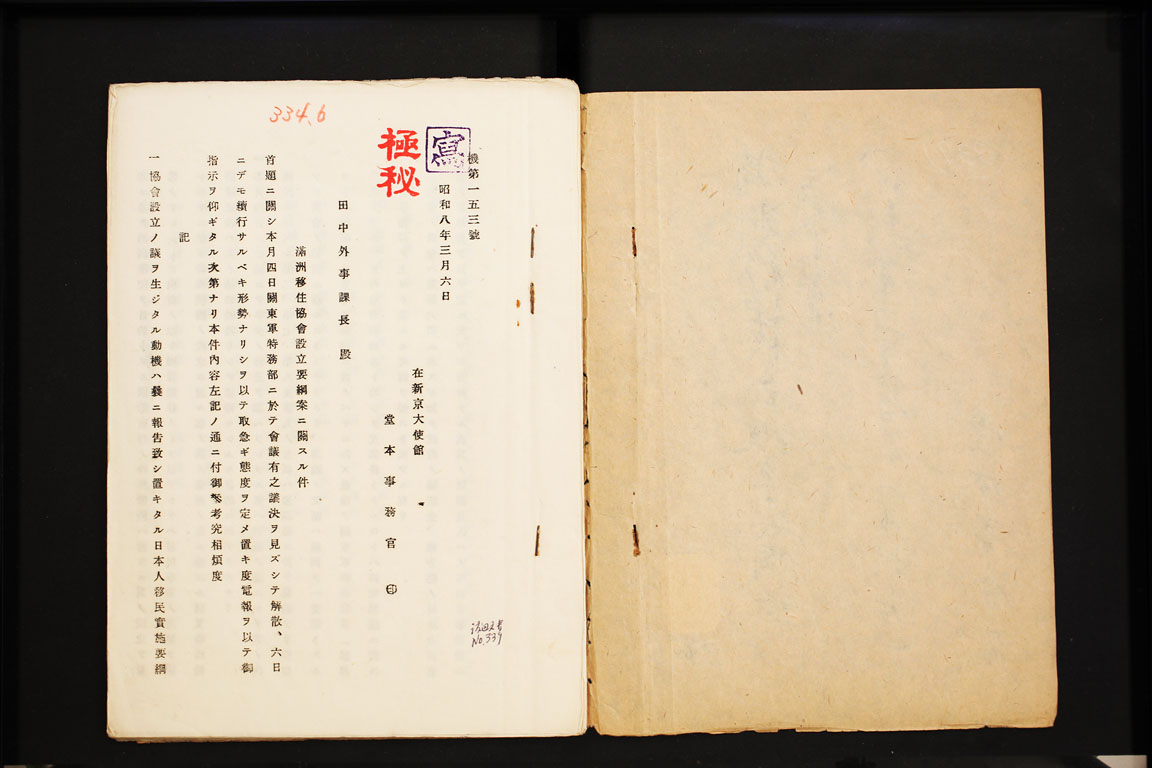 334.6
寫
極秘
機第一五三號
昭和八年三月六日
在新京大使館
堂本事務官㊞
田中外事課長 殿
滿洲移住協會設立要綱案ニ關スル件
首題ニ關シ本月四日關東軍特務部ニ於テ會議有之議決ヲ見ズシテ解散、六日
ニデモ續行サルベキ形勢ナリシヲ以テ取急ギ態度ヲ定メ置キ度電報ヲ以テ御
指示ヲ仰ギタル次第ナリ本件內容左記ノ通ニ付御參考究相煩度
記
一協會設立ノ議ヲ生ジタル動機ハ曩ニ報告致シ置キタル日本人移民實施要綱
No.339